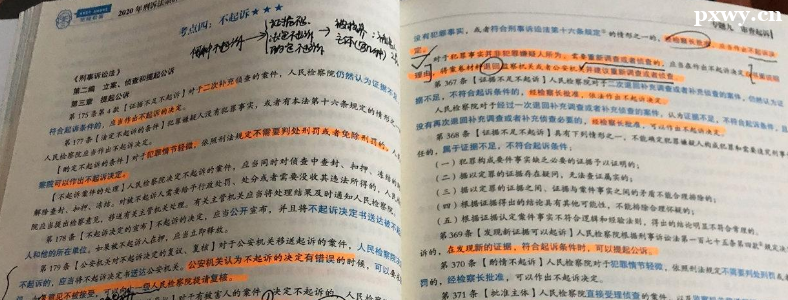 2020年刑诉法
考点四：不起诉★★★
《刑事诉讼法》
第二编 立案、侦查和提起公诉
第三章 提起公诉
第175条第4款【证据不足不起诉】对于二次补充侦查的案件，人民检察院仍然认为证据不足，不
符合起诉条件的，应当作出不起诉的决定。
第177条【法定不起诉的条件】犯罪嫌疑人没有犯罪事实，或者有本法第十六条规定的情形之一
人民检察院应当作出不起诉决定。
【酌定不起诉的条件】对于犯罪情节轻微，依照刑法规定不需要判处刑罚或者免除刑罚的，人民检
察院可以作出不起诉决定。
【不起诉案件的处理】人民检察院决定不起诉的案件，应当同时对侦查中查封、扣押、冻结的
解除查封、扣押、冻结。对被不起诉人需要给予行政处罚、处分或者需要没收其违法所得的，人民
院应当提出检察意见，移送有关主管机关处理。有关主管机关应当将处理结果及时通知人民检察院。
第178条【不起诉决定的宣布】不起诉的决定，应当公开宣布，并且将不起诉决定书送达被不起诉
人和他的所在单位。如果被不起诉人在押，应当立即释放。
第179条【公安机关对不起诉决定的复议、复核】对于公安机关移送起诉的案件，人民检察院
不起诉的，应当将不起诉决定书送达公安机关。公安机关认为不起诉的决定有错误的时候，可以要
一级人民检察院提请复核。
pxwy.cn
专题九 审查起诉
没有犯罪事实，或者符合刑事诉讼法第十六条规定的情形之一的，经检察长批准，应当作出不起诉决
定。
对于犯罪事实并非犯罪嫌疑人所为，需要重新调查或者侦查的，应当在作出不起诉决定后书面说明
理由，将案卷材料退回监察机关或者公安机关并建议重新调查或者侦查。
第367条【证据不足不起诉】
据不足，不符合起诉条件的，经检察长批准，依法作出不起诉决定。
人民检察院对于经过一次退回补充调查或者补充侦查的案件，认为证据不足，不符合起诉条件，且
没有再次退回补充调查或者补充侦查必要的，经检察长批准，可以作出不起诉决定。
第368条【证据不足不起诉】具有下列情形之一，不能确定犯罪嫌疑人构成犯罪和需要追究刑事
任的，属于证据不足，不符合起诉条件：
（一）犯罪构成要件事实缺乏必要的证据予以证明的；
（二）据以定罪的证据存在疑问，无法查证属实的；
（三）据以定罪的证据之间、证据与案件事实之间的矛盾不能合理排除的；
（四）根据证据得出的结论具有其他可能性，不能排除合理怀疑的；
（五）根据证据认定案件事实不符合逻辑和经验法则，得出的结论明显不符合常理的。
第369条【发现新证据可以起诉】人民检察院根据刑事诉讼法第一百七十五条第四款规定决定
诉的，在发现新的证据，符合起诉条件时，可以提起公诉。
第370条【酌情不起诉】人民检察院对于犯罪情节轻微，依照刑法规定不需要判处刑罚或
罚的，经检察长批准，可以作出不起诉决定。
第371条【批准主体】人民检察院直接受理侦查的案件